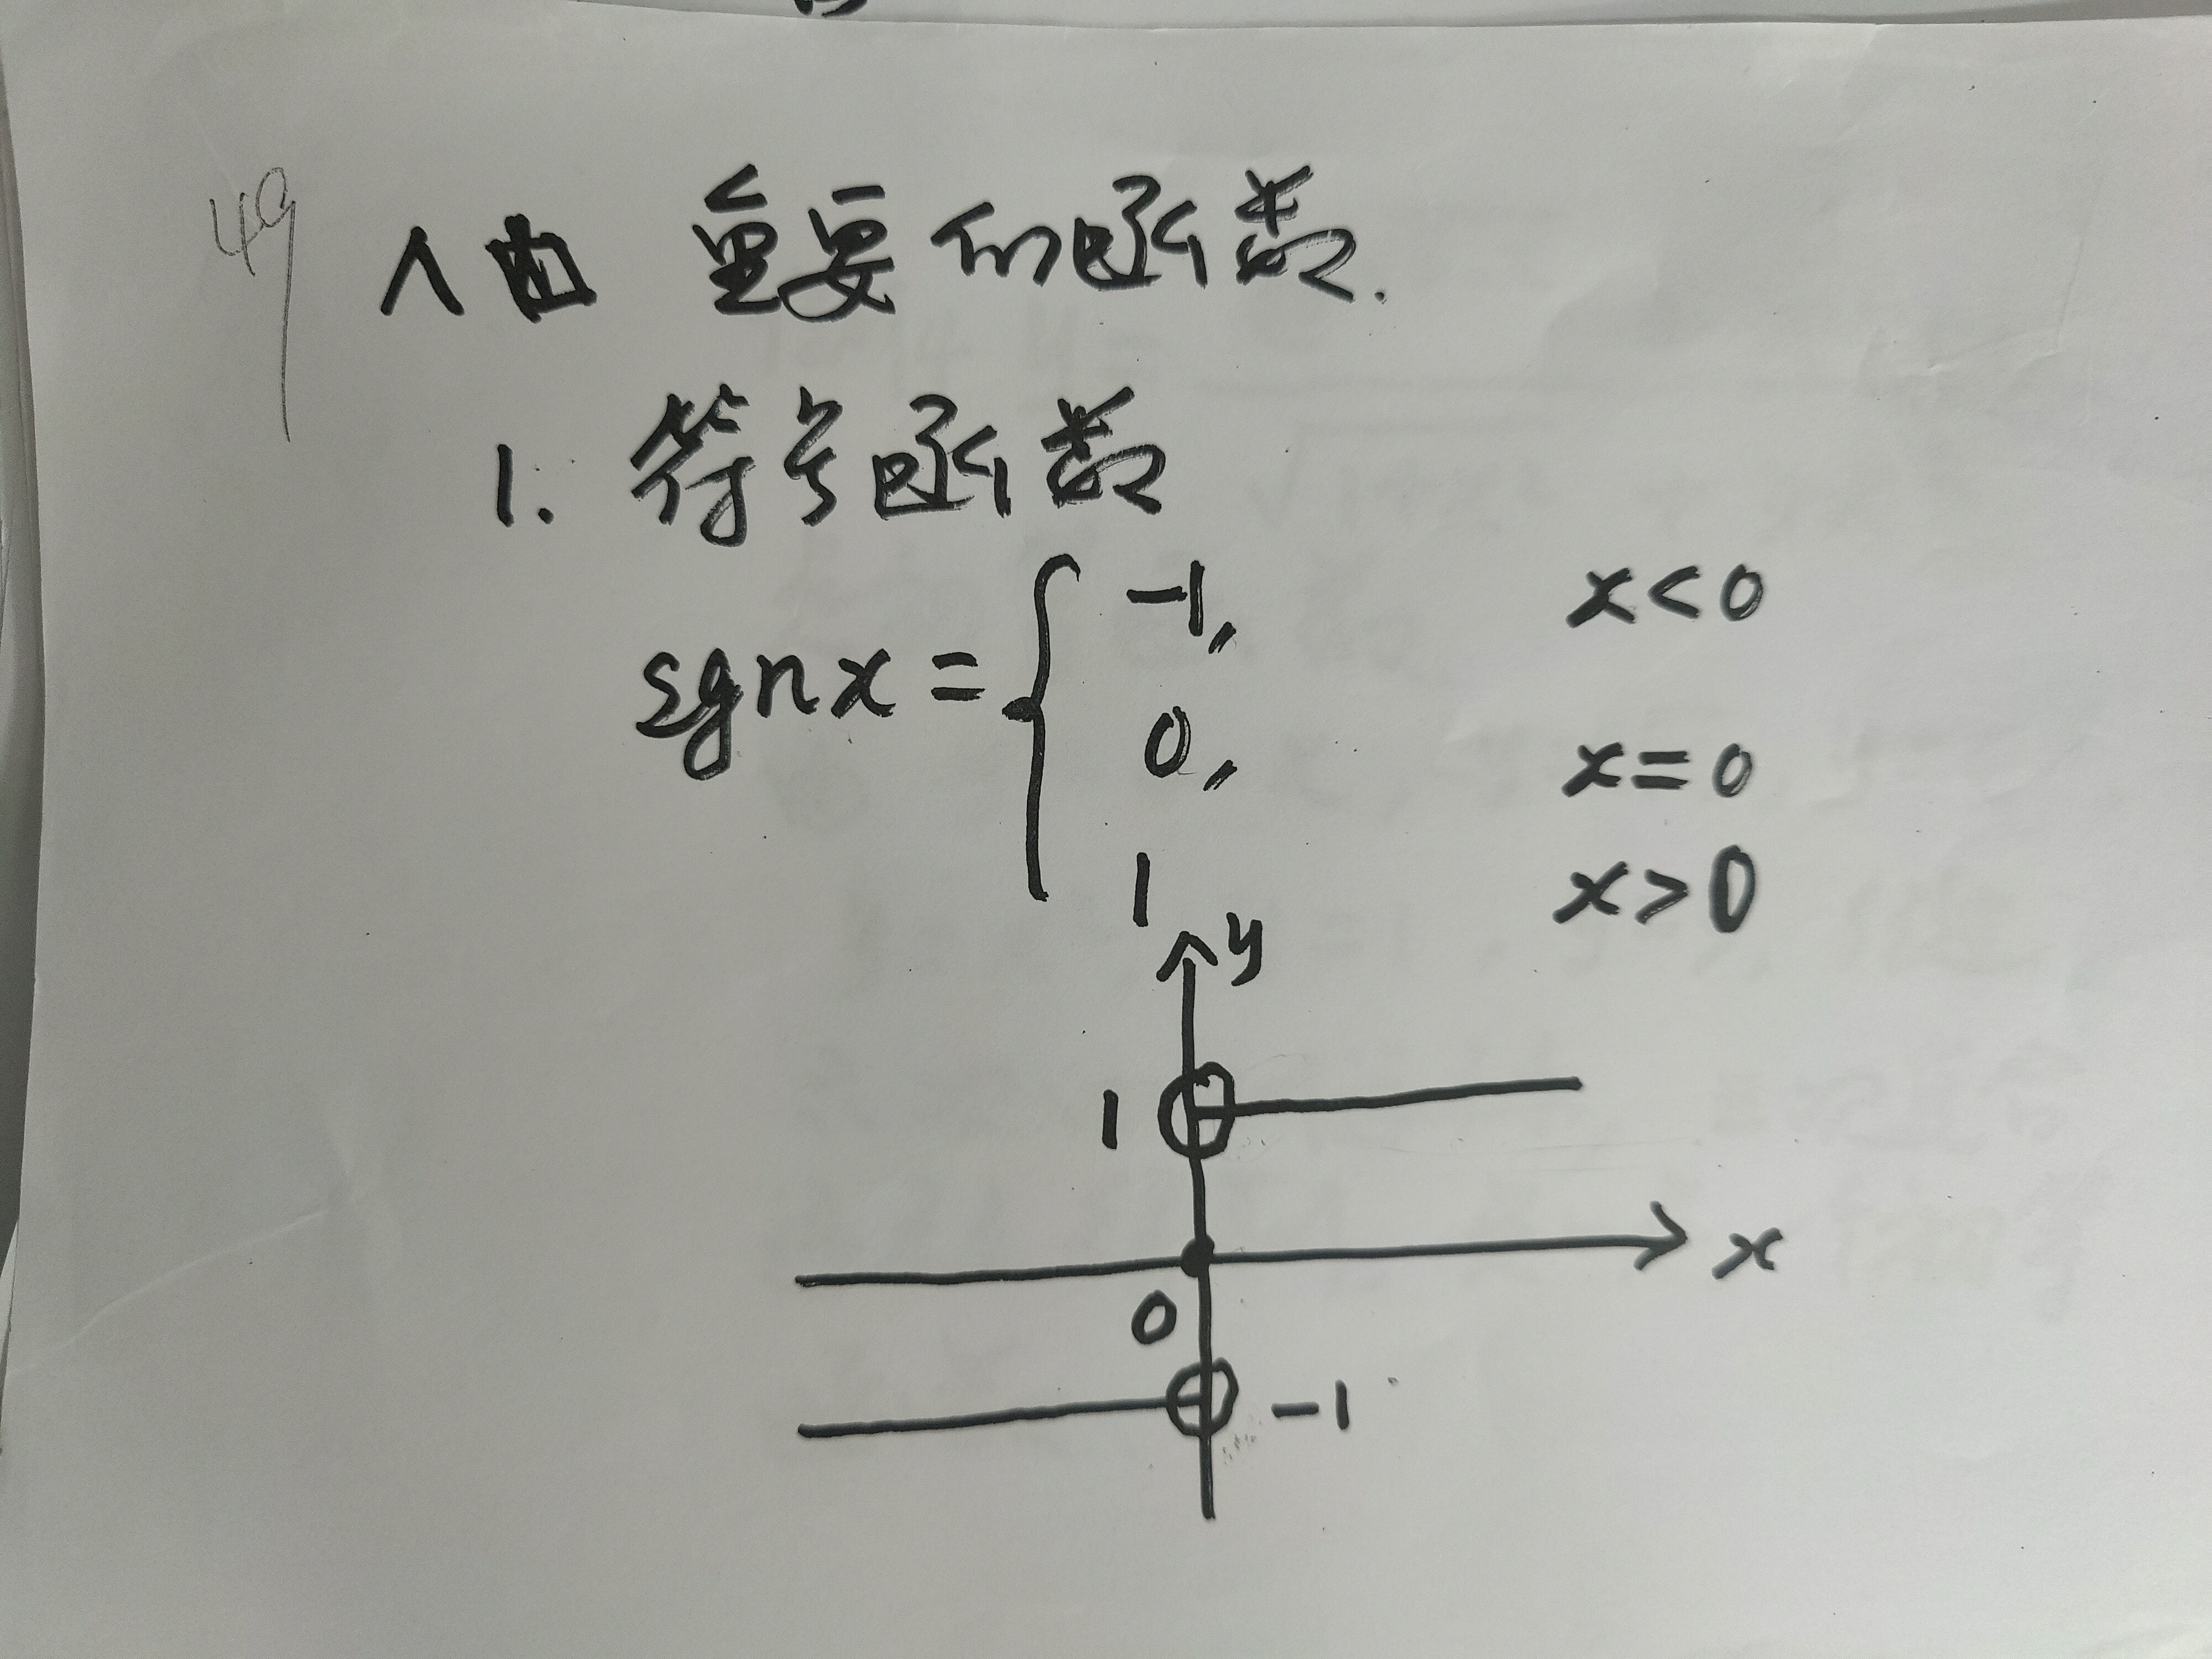 49
八 重要的函数.
1. 符号函数
sgn x = { -1, x<0
0, x=0
1 x>0
y
1
x
0
-1